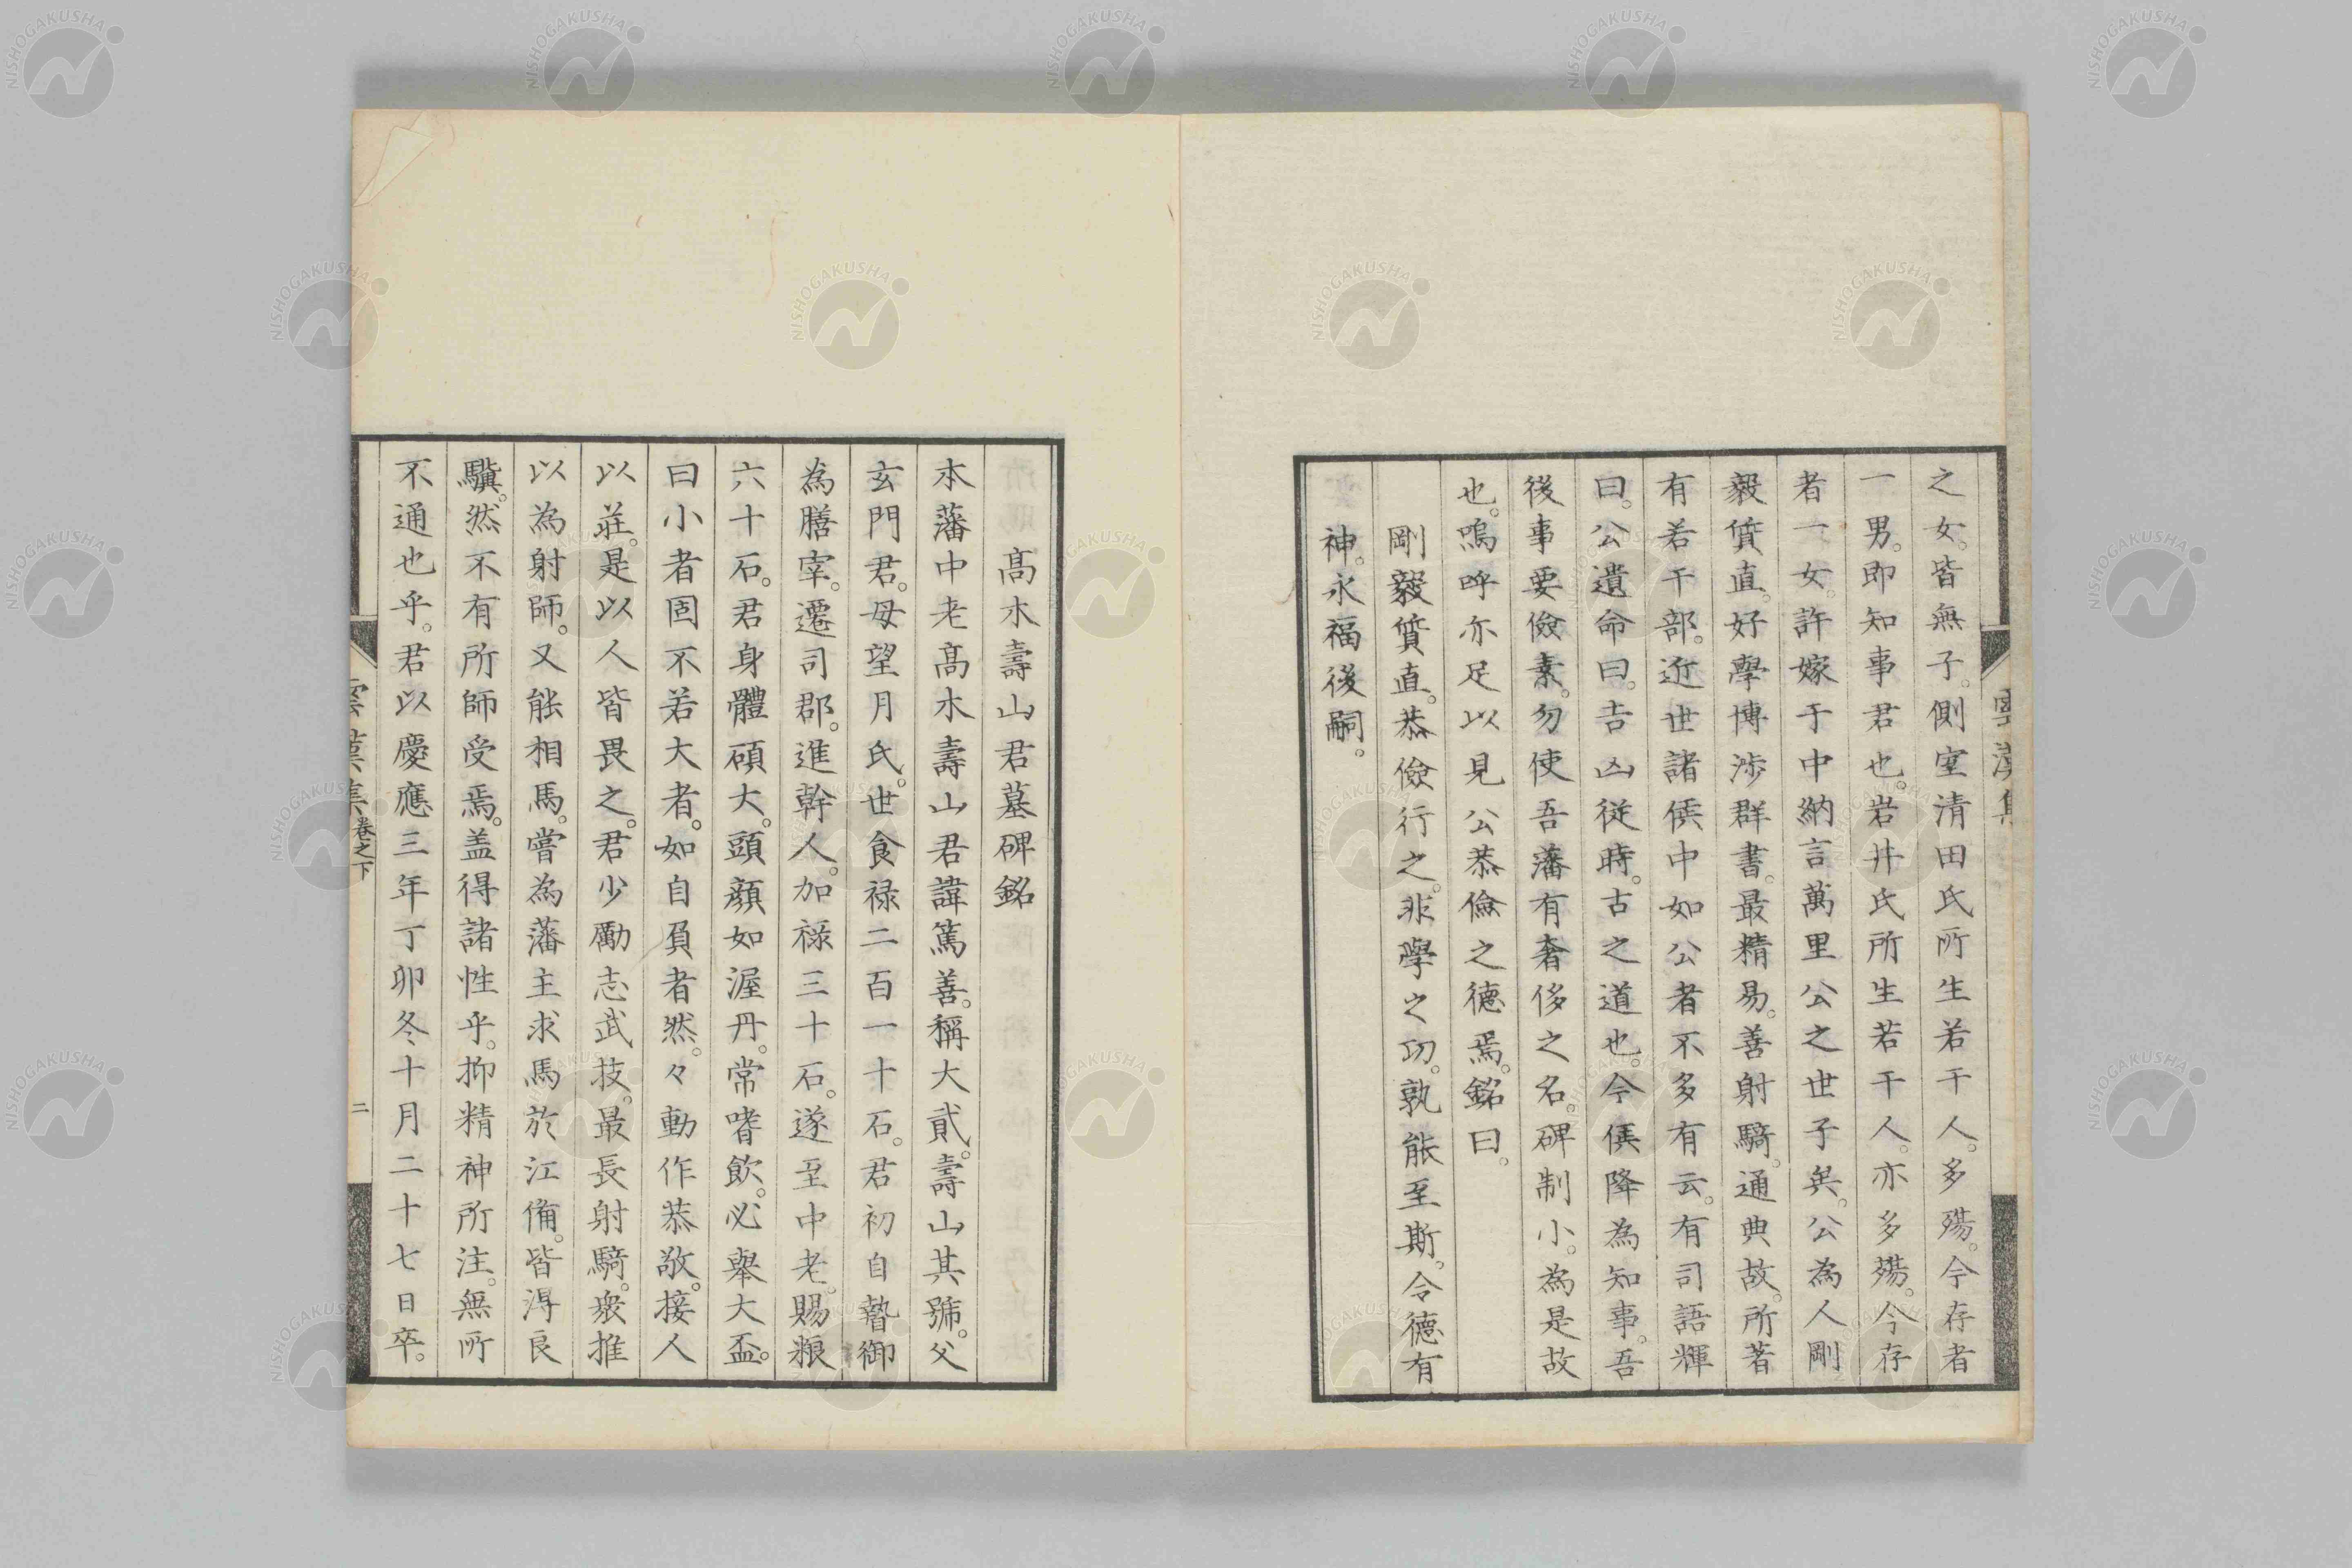 之女。皆無子。側室清田氏所生若干人。多殤。今存者
一男。即知事君也。岩井氏所生若干人。亦多殤。今存
者一女。許嫁于中納言萬里公之世子矣。公為人剛
毅質直。好學博渉群書。最精易。善射騎。通典故。所著
有若干部。近世諸侯中如公者不多有云。有司語輝
曰。公遺命曰。吉凶従時。古之道也。今侯降為知事。吾
後事要儉素。勿使吾藩有奢侈之名。碑制小。為是故
也。嗚呼亦足以見公恭儉之德焉。銘曰。
剛毅質直。恭儉行之。非學之功。孰能至斯。令德有
神。永福後嗣。
髙木壽山君墓碑銘
本藩中老髙木壽山君諱篤善。稱大貳。壽山其號。父
玄門君。母望月氏。世食禄二百一十石。君初自贄御
為膳宰。遷司郡。進幹人。加禄三十石。遂至中老。賜粮
六十石。君身體碩大。頭顔如渥丹。常嗜飲。必舉大盃。
曰小者固不若大者。如自負者然。々動作恭敬。接人
以莊。是以人皆畏之。君少勵志武技。最長射騎。衆推
以為射師。又能相馬。嘗為藩主求馬於江備。皆淂良
驥。然不有所師受焉。盖得諸性乎。抑精神所注。無所
不通也乎。君以慶應三年丁卯冬十月二十七日卒。
雲漢集
卷之下
二
NISHOGAKUSHA